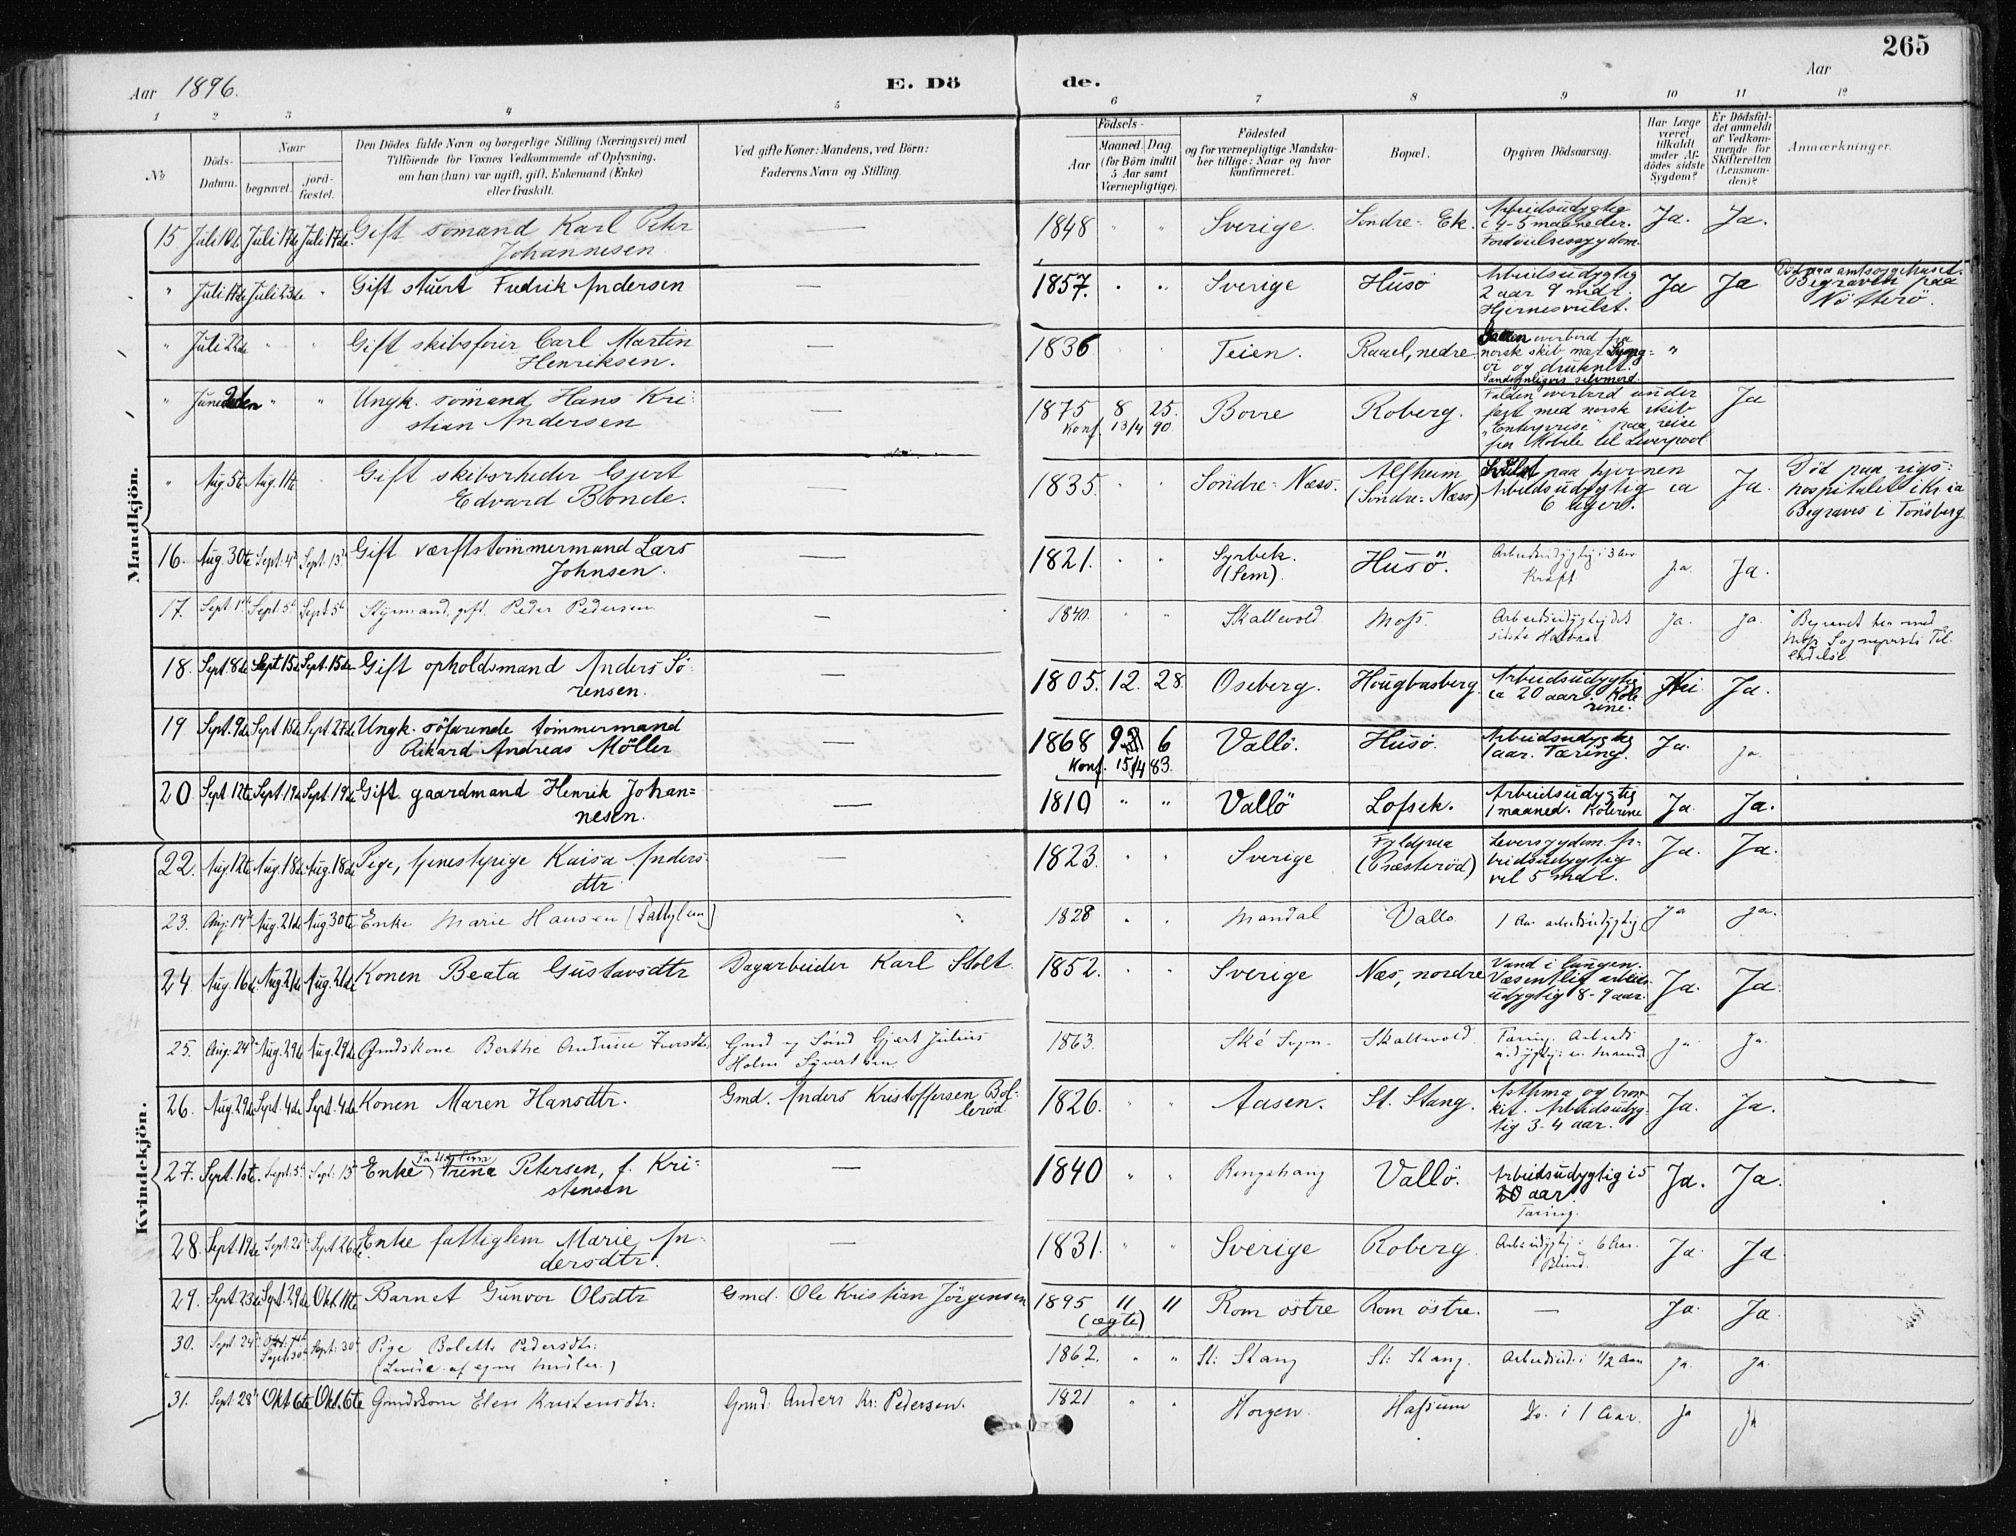 265
Aar 1896.
E. Dö
de.
Aar
1 2 3 4 5 6 7 8 9 10 11 12
No
Döds-
Datum.
Naar
begravet.
jord-
fæstet.
Den Dödes fulde Navn og borgerlige Stilling (Næringsvei) med
Tilföiende for Voxnes Vedkommende af Oplysning,
om han (hun) var ugift, gift, Enkemand (Enke)
eller fraskilt.
Ved gifte Koner: Mandens, ved Börn:
Faderens Navn og Stilling.
Födsels-
Aar
Maaned.
Dag.
(for Börn indtil
5 Aar samt
Værnepligtige).
Födested
og for værnepligtige Mandska-
ber tillige: Naar og hvor
konfirmeret.
Bopæl.
Opgiven Dödsaarsag.
Har Læge
været
tilkaldt
under Af-
dödes sidste
Sygdom?
Er Dödsfal-
det anmeldt
af Vedkom-
mende for
Skifteretten
(Lensman-
den)?
Anmærkninger.
Mandkjön.
15 Juli 10de Juli 17de Juli 17de Gift sömand Karl Pehr
Johannesen — 1848 " " Sverige. Söndre Ek. Arbeidsudygtig
i 4-5 maaneder.
Fordöielsessygdom. Ja. Ja.
" Juli 18de Juli 23de " Gift stuert Fredrik Andersen — 1857. " " Sverige Husö Arbeidsudygtig
2 aar 9 mdr.
Hjernesvulst. Ja Ja Död paa amtssygehuset.
Begraven paa
Nötterö.
" Juli 22de " " Gift skibsförer Carl Martin
Henriksen. — 1836 " " Teien. Raael, nedre. Falden overbord fra
norsk skib nær Lyng-
ör og druknet.
Sandsynligvis selvmord. "
" Juni " " Ungk. sömand Hans Kri-
stian Andersen — 1875 8 25.
Konf. 13/4 90. Borre Roberg. Falden overbord under
fart med norsk skib
"Enterprise" paa reise
fra Mobile til Liverpool Ja
" Aug. 5te Aug. 11te " Gift skibsrheder Gjert
Edvard Blonde. — 1835. " " Söndre-Næss. Alfheim
(Söndre-Næss) Svulst paa hjernen
Arbeidsudygtig ca
6 uger. Ja. Död paa rigs-
hospitalet i Kr.ia
Begraves i Tönsberg
16. Aug. 30te Sept. 4de Sept. 13de Gift værftstömmermand Lars
Johnsen. — 1821. " " Syrbek.
(Sem). Husö. Arbeidsudygtig i 3 aar
Kræft ja. Ja.
17. Sept. 1ste Sept. 5te Sept. 5te Styrmand, gift. Peder Pedersen — 1840. " " Skallevold Moss. Arbeidsudygtig det
sidste Halvaar ja. ja. Begravet her med
Moss Sogneprests Til-
ladelse
18. Sept. 8de Sept. 15de Sept. 15de Gift opholdsmand Anders Sö-
rensen. — 1805. 12. 28. Oseberg. Hougbasberg Arbeidsudygtig
ca 20 aar. Kole-
rine. Nei Ja.
19 Sept. 9de Sept. 15de Sept. 27de Ungk. söfarende tömmermand
Rikard Andreas Möller — 1868 9 6
Konf. 15/4 83. Vallö. Husö. Arbeidsudygtig
1 aar. Tæring. Ja. ja.
20 Sept. 12te Sept. 19de Sept. 19de Gift gaardmand Henrik Johan-
nesen. — 1810 " " Vallö Lofsek. Arbeidsudygtig
1 maaned. Kolerine Ja. Ja.
Kvindekjön.
22. Aug. 12te Aug. 18de Aug. 18de Pige, tjenestepige Kaisa Anders-
dtr. — 1823. " " Sverige Fyldpaa
(Præsteröd) Leversygdom. Ar-
beidsudygtig
vel 5 mdr. Ja. Ja.
23. Aug. 14de Aug. 21de Aug. 30te Enke Marie Hansen (Fattiglem) " 1828 " " Mandal Vallö 1 Aar arbeidsudygtig. Ja ja.
24 Aug. 16de Aug. 21de Aug. 21de Konen Beata Gustavsdtr Dagarbeider Karl Stolt. 1852. " " Sverige Næs, nordre Vand i lungen.
Væsentlig arbeids-
udygtig 8-9 aar. Ja. Ja.
25. Aug. 24de Aug. 29de Aug. 29de Gmdskone Berthe Andrine Iversdtr. Gmd og Sömd Gjært Julius
Holm Syvertsen 1863. " " Ské Sogn. Skallevold. Tæring. Arbeids-
udygtig en Maaned ja. ja.
26. Aug. 29de Sept. 4de Sept. 4de Konen Maren Hansdtr. Gmd. Anders Kristoffersen Bol-
leröd 1826. " " Aasen. St. Stang. Asthma og bron-
kit. Arbeidsudyg-
tig 3-4 aar. Ja. Ja.
27. Sept. 10de. Sept. 15 Enke Fattiglem Trine Petersen, f. Kri-
stensen — 1840 " " Ringshaug Vallö. Arbeidsudygtig i 5
20 aar.
Tæring. Ja. Ja.
28. Sept. 19de Sept. 26de Sept. 26de Enke fattiglem Marie An-
dersdtr. — 1831. " " Sverige Roberg. Arbeidsudygtig i 6 Aar.
Blind. Ja. Ja
29. Sept. 23de Sept. 29de Okt. 11te Barnet Gunvor Olsdtr Gmd. Ole Kristian Jörgensen 1895 11 11
(ægte) Rom östre Rom östre. — Ja. Ja.
30. Sept. 24de Sept. 30te Sept. 30te Pige Bolette Pedersdtr.
(Levde af egne Midler.) 1862. " " St. Stang St. Stang. Arbeidsud. i 1/2 Aar ja. ja.
31. Sept. 28de Okt. 6te Okt. 6te Gmdskone Elen Kristensdtr. Gmd. Anders Kr. Pedersen. 1821 " " Horgen. Hassum Do. i 1 Aar. ja ja